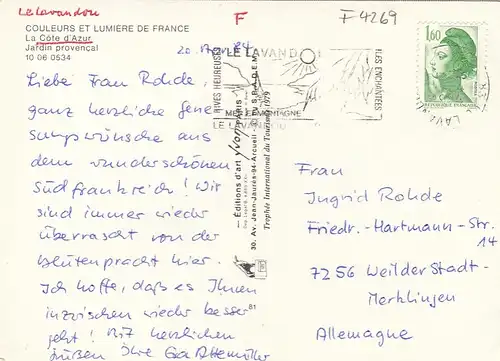 Le Lavandou
COULEURS ET LUMIERE DE FRANCE
La Côte d'Azur
Jardin provençal
10 06 0534
F
F 4269
20. 84
Liebe Frau Rohde,
ganz herzliche Gene
sungswünsche aus
dem wunderschönen
Südfrankreich! Wir
sind immer wieder
überrascht von der
Blütenpracht hier.
Ich hoffe, daß es Ihnen
inzwischen wieder besser
geht! Mit herzlichen
Grüßen Ihre
81
— Éditions d'art yvon
30, Av. Jean-Jaurès-94-Arcueil
Trophée International du Tourisme 1979
RIVES HEUREUSES
LE LAVANDOU
MER ET MONTAGNE
LE LAVANDOU
ILES ENCHANTEES
1,60
REPUBLIQUE FRANÇAISE
Frau
Ingrid Rohde
Friedr.-Hartmann-Str.
14
7256 Weil der Stadt-
Merklingen
Allemagne